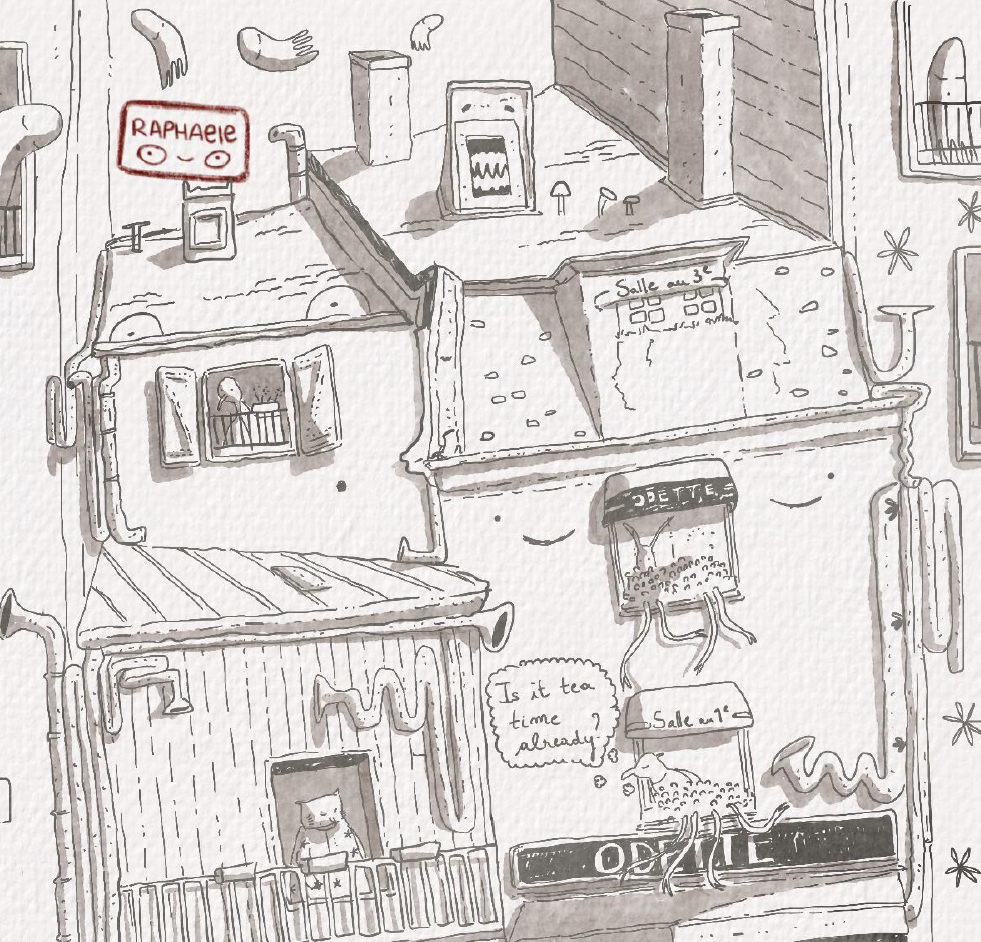 RAPHAElE
Salle au 3e
ODETTE
Is it tea
time ?
already
Salle au 1e
ODETTE